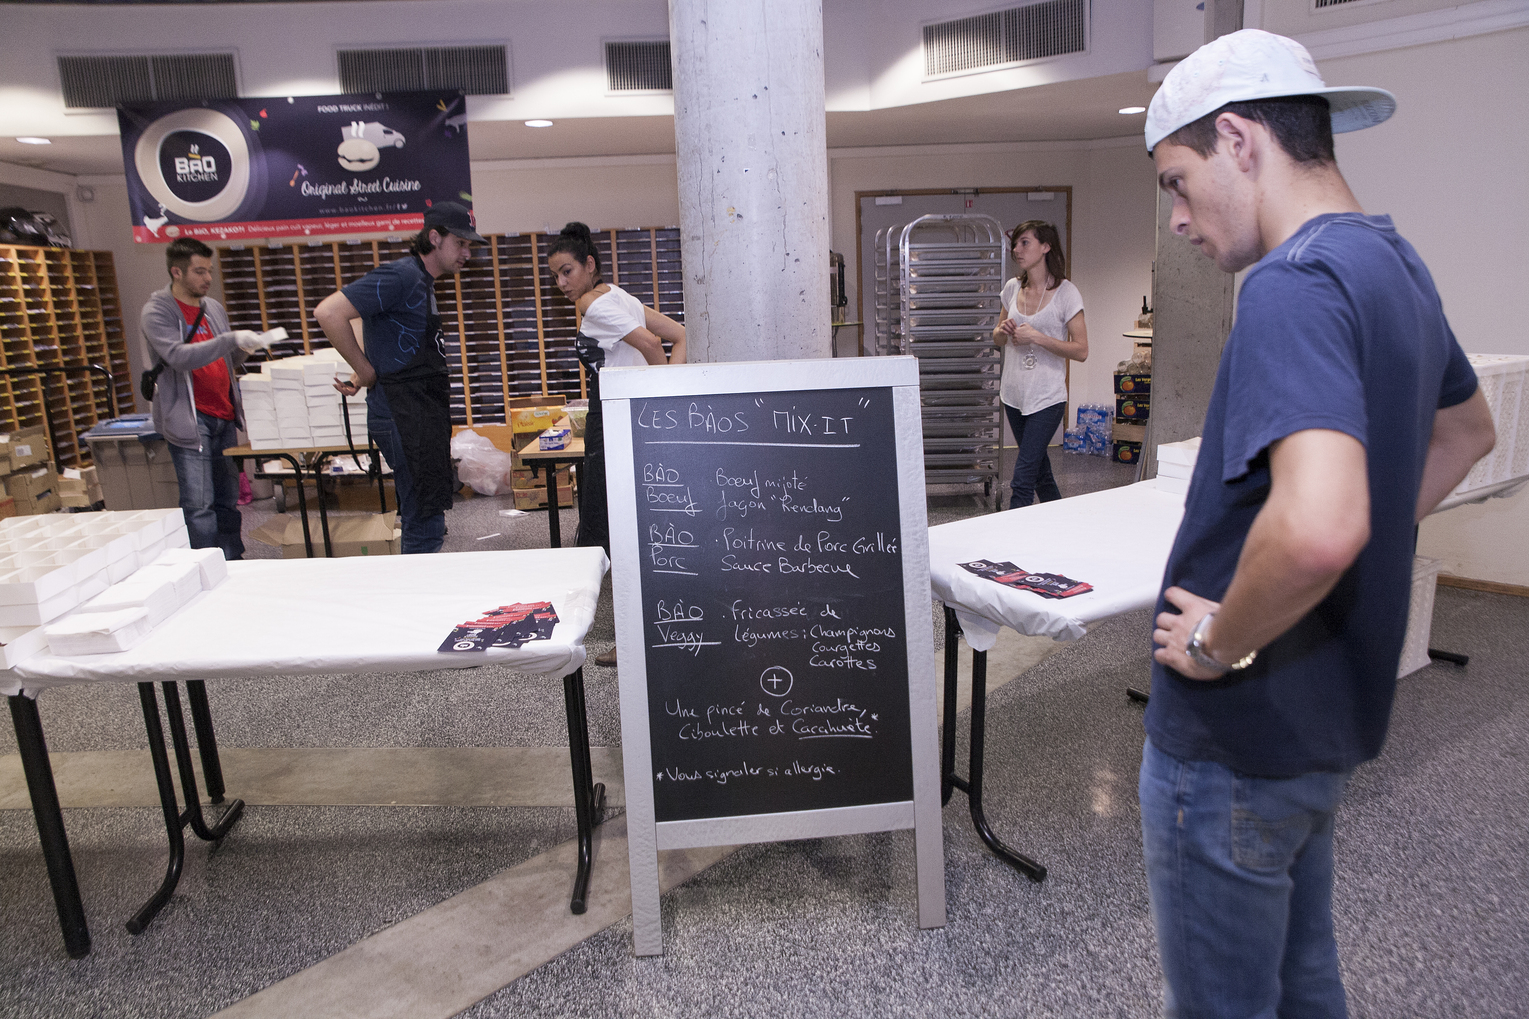 FOOD TRUCK INÉDIT !
BÁO
KITCHEN
Original Street Cuisine
www.baokitchen.fr
Le BÁO, KEZAKO?! Délicieux pain cuit vapeur, léger et moelleux garni de recettes
LES BÀOS "MiX-IT"
BÀO . Boeuf mijoté
Boeuf façon "Rendang"
BÀO . Poitrine de Porc Grillée
Porc Sauce Barbecue
BÀO . Fricassée de
Veggy Légumes : Champignons
Courgettes
Carottes
+
Une pincé de Coriandre,
Ciboulette et Cacahuète*.
* Vous signaler si allergie.